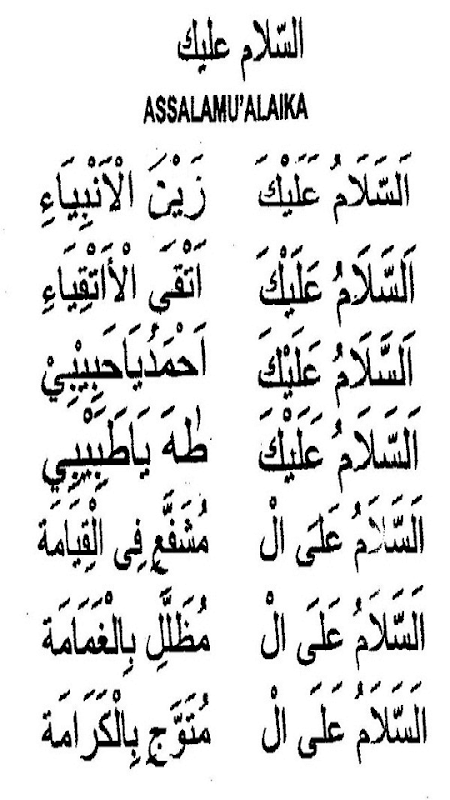 السّلام عليك
ASSALAMU’ALAIKA
اَلسَّلَامُ عَلَيْكَ زَيْنَ الْأَنْبِيَاءِ
اَلسَّلَامُ عَلَيْكَ اَتْقَى الْأَتْقِيَاءِ
اَلسَّلَامُ عَلَيْكَ اَحْمَدُ يَاحَبِيْبِيْ
اَلسَّلَامُ عَلَيْكَ طٰهَ يَاطَبِيْبِي
اَلسَّلَامُ عَلَى الْ مُشَفَّعِ فِى الْقِيَامَة
اَلسَّلَامُ عَلَى الْ مُظَلَّلِ بِالْغَمَامَة
اَلسَّلَامُ عَلَى الْ مُتَوَّجِ بِالْكَرَامَة